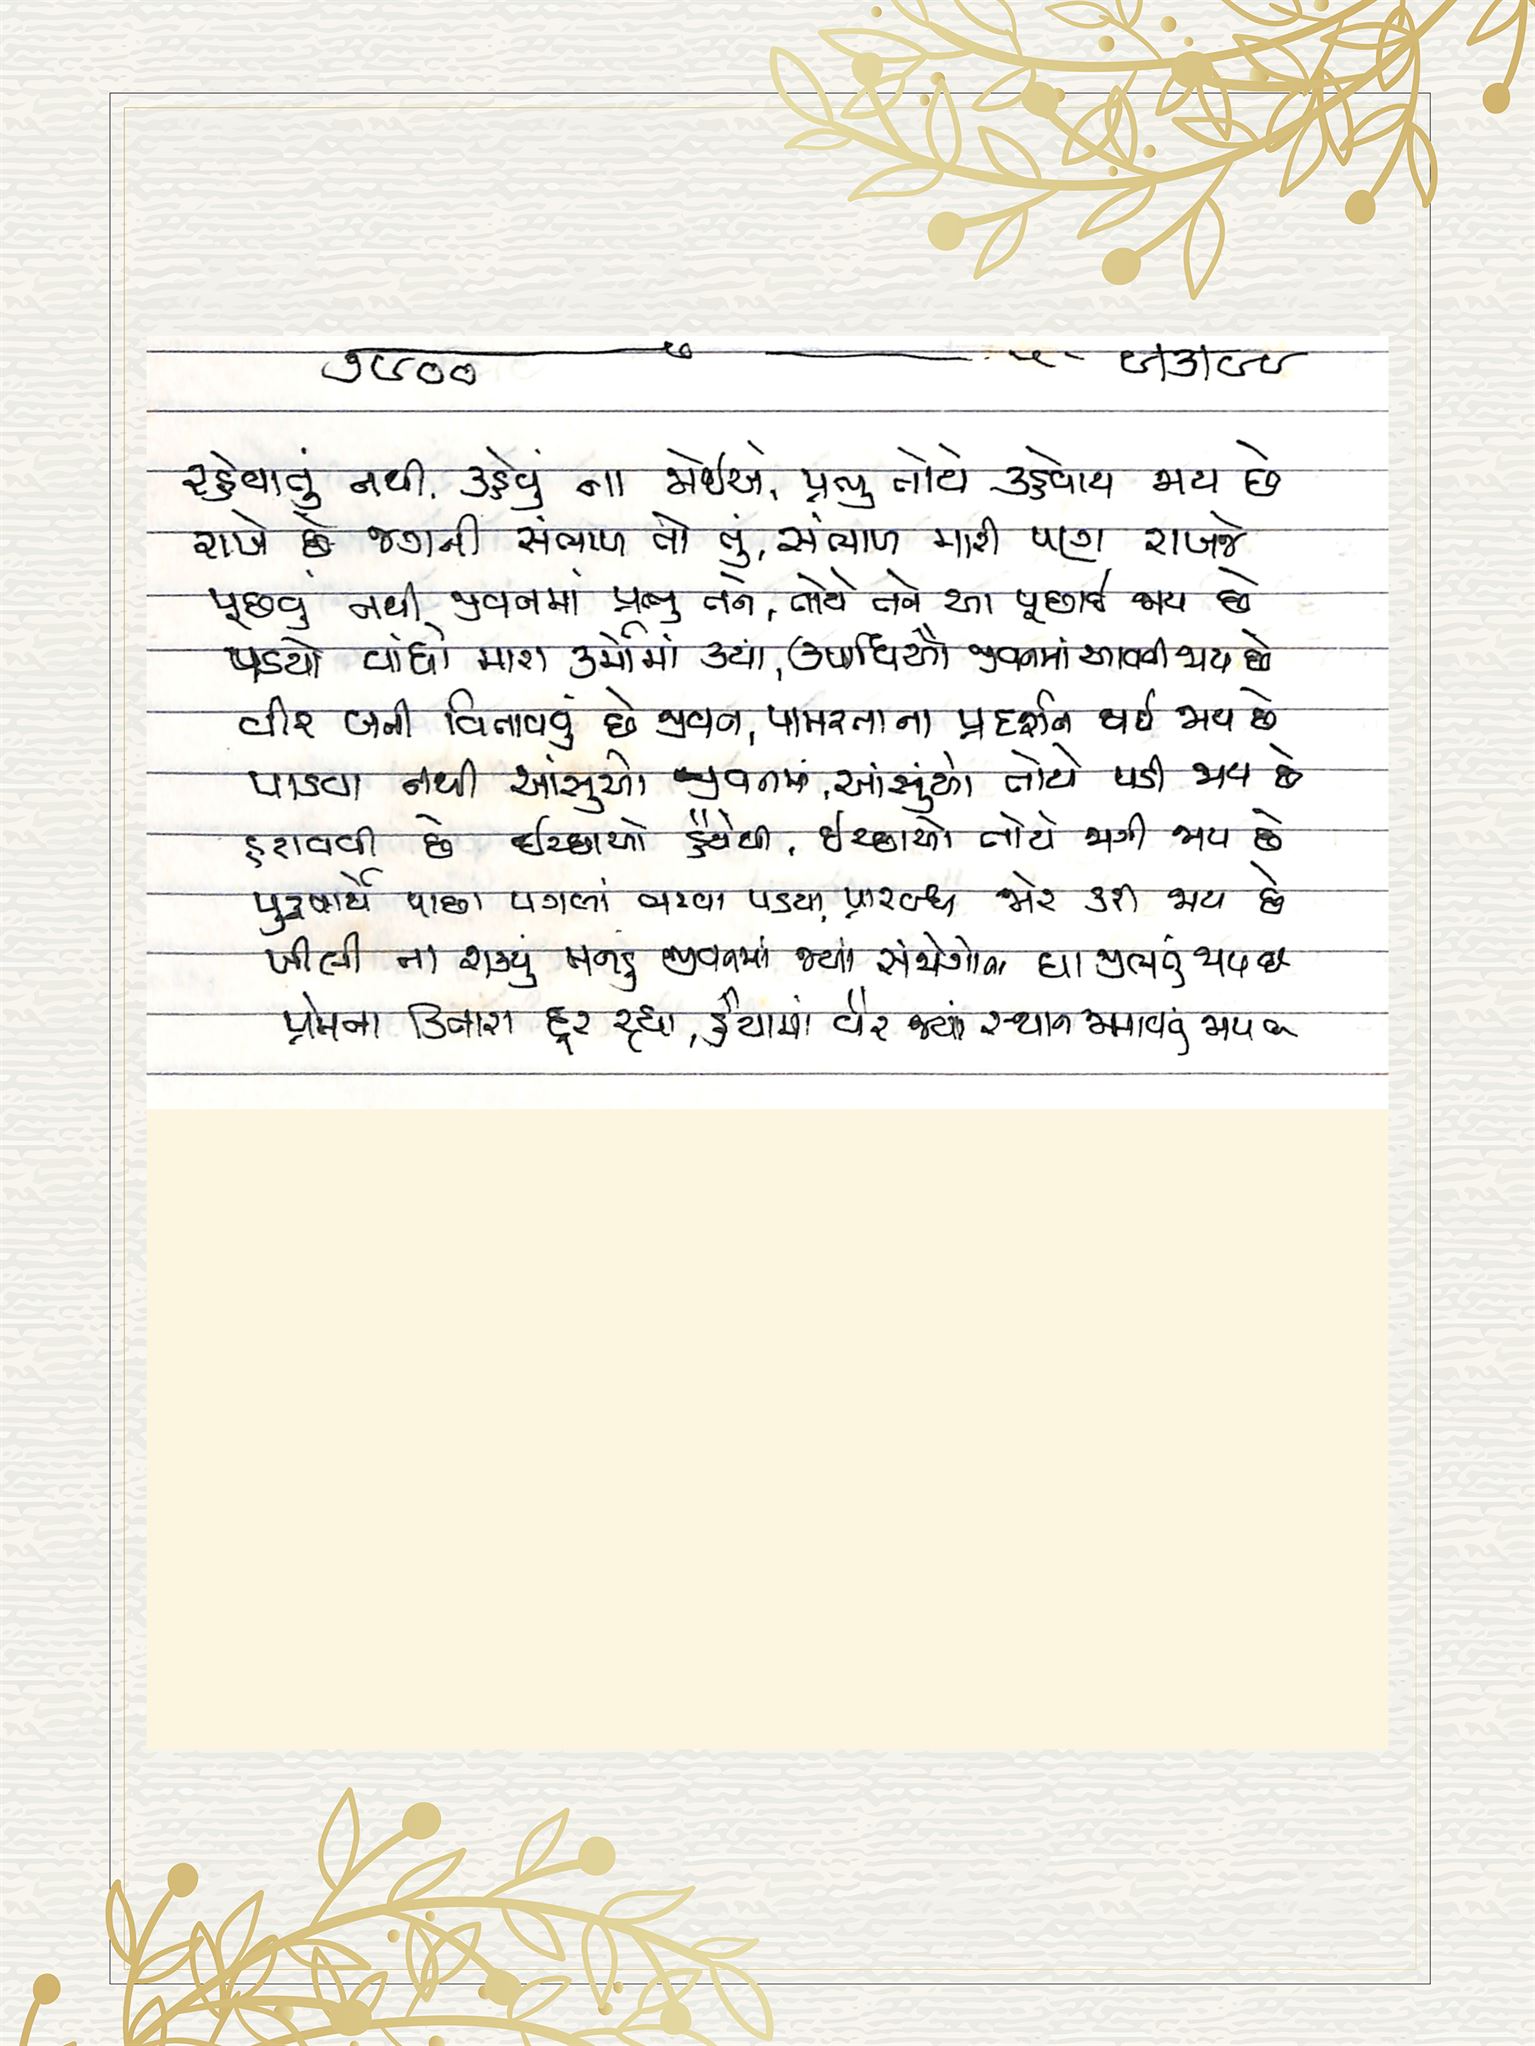 ૭૯૦૦
રહેવાતું નથી, કહેવું ના જોઈએ, પ્રભુ તોયે કહેવાય જાય છે
રાખે છે જગની સંભાળ તો તું, સંભાળ મારી પણ રાખજે
પૂછવું નથી જીવનમાં પ્રભુ તને, તોયે તને આ પૂછાઈ જાય છે
પડયો વાંધો મારા કર્મોમાં ક્યાં, ઉપાધિઓ જીવનમાં આવતી જાય છે
વીર બની વિતાવવું છે જીવન, પામરતાના પ્રદર્શન થઈ જાય છે
પાડવા નથી આંસુઓ જીવનમાં, આંસુઓ તોયે પડી જાય છે
હરાવવી છે ઈચ્છાઓ હૈયેથી, ઈચ્છાઓ તોયે જાગી જાય છે
પુરુષાર્થે પાછા પગલાં ભરવા પડયા, પ્રારબ્ધ જોર કરી જાય છે
ખીલી ના શક્યું મનડું જીવનમાં જ્યાં સંજોગોના ઘા ઝીલતું જાય છે
પ્રેમના કિનારા દૂર રહ્યા, હૈયામાં વૈર જ્યાં સ્થાન જમાવતું જાય છે